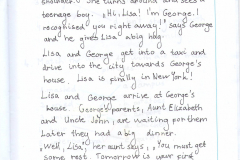 shoulder. She turns around and sees a
teenage boy. „Hi, Lisa! I'm George. I
recognised you right away!" says George
and he gives Lisa a big hug.
Lisa and George get into a taxi and
drive into the city towards George's
house. Lisa is finally in New York!
Lisa and George arrive at George's
house. George's parents, Aunt Elizabeth
and Uncle John, are waiting for them.
Later they had a big dinner.
„Well, Lisa," her aunt says, „You must get
some rest. Tomorrow is your first